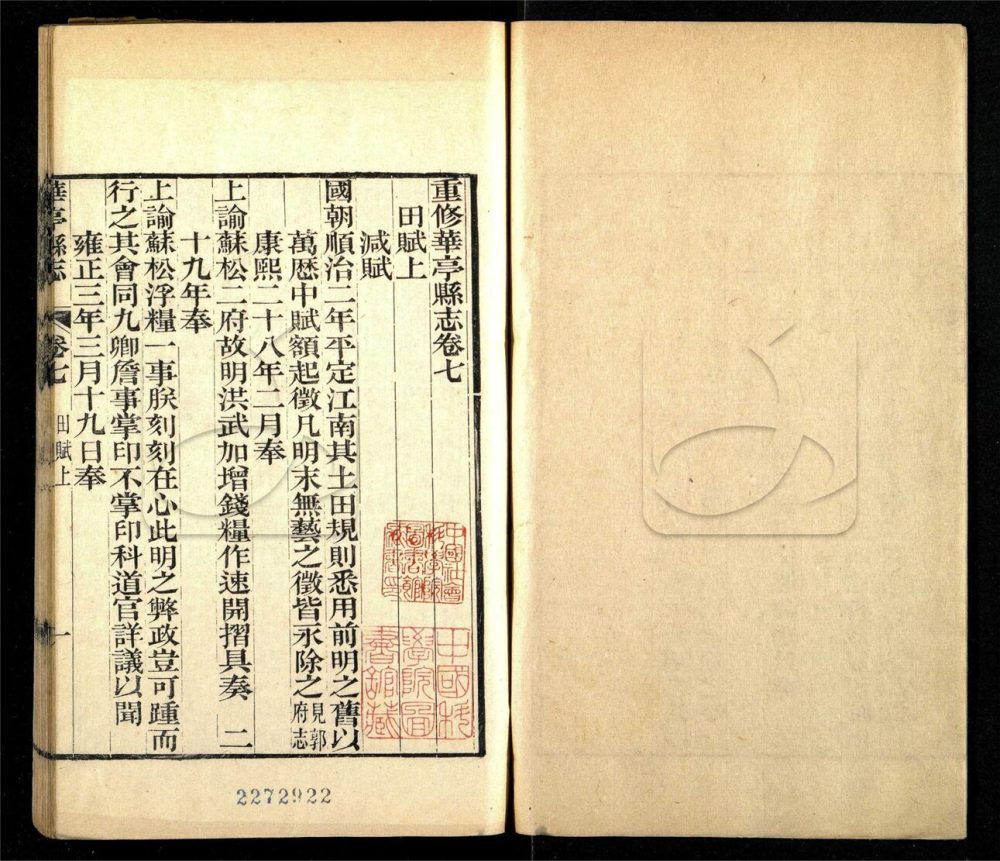 重修華亭縣志卷七
田賦上
減賦
國朝順治二年平定江南其土田規則悉用前明之舊以
萬歷中賦額起徵凡明末無藝之徵皆永除之見郭府志
康熙二十八年二月奉
上諭蘇松二府故明洪武加增錢糧作速開摺具奏　二
十九年奉
上諭蘇松浮糧一事朕刻刻在心此明之弊政豈可踵而
行之其會同九卿詹事掌印不掌印科道官詳議以聞
雍正三年三月十九日奉
華亭縣志　卷七　田賦上　一
中國社會科學院圖書館藏書印
中國科學院圖書館藏
2272922